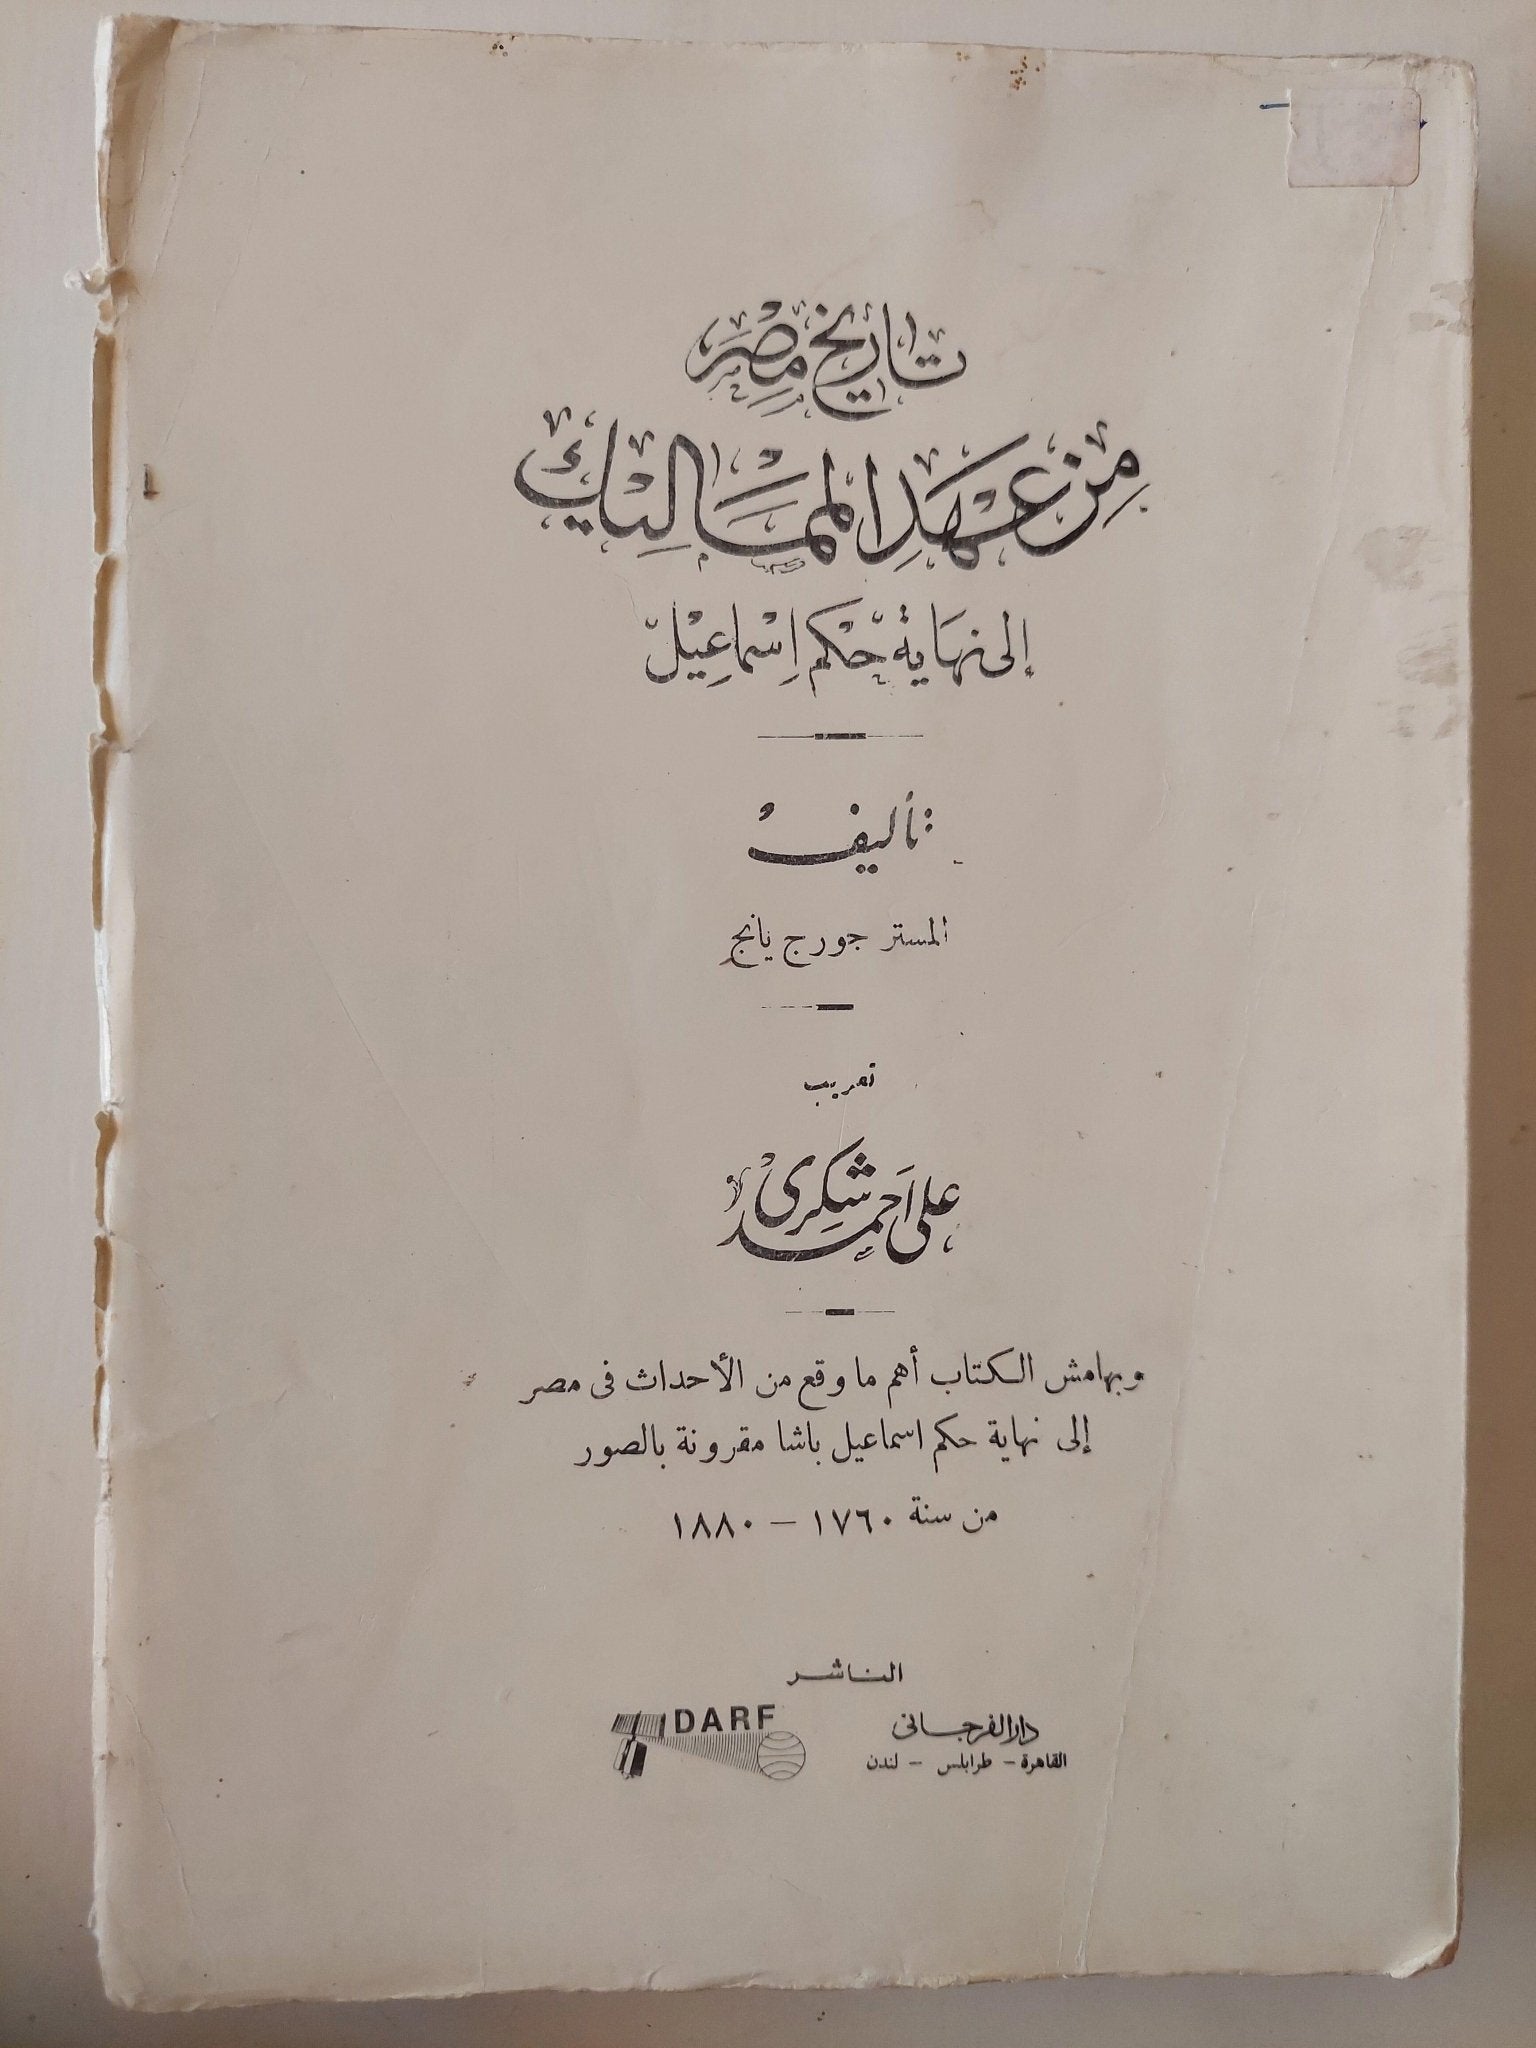 تاريخ مصر
من عهد المماليك
إلى نهاية حكم إسماعيل
تأليف
المستر جورج يانج
تعريب
على أحمد شكرى
وبهامش الكتاب أهم ما وقع من الأحداث فى مصر
إلى نهاية حكم اسماعيل باشا مقرونة بالصور
من سنة ١٧٦٠ – ١٨٨٠
الناشر
دار الفرجانى
القاهرة – طرابلس – لندن
DARF